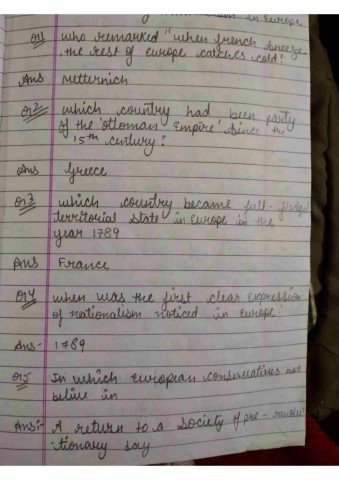 in Europe
Q1 who remarked "when french sneeze
the rest of europe catches cold"
Ans Metternich
Q2 which country had been party
of the 'ottoman Empire' since the
15th century?
Ans Greece
Q3 which country became full-fledged
territorial state in Europe in the
year 1789
Ans France
Q4 when was the first clear expression
of nationalism noticed in europe
Ans- 1789
Q5 In which european conservatives not
belive in
Ans:- A return to a society of pre-
tionary day